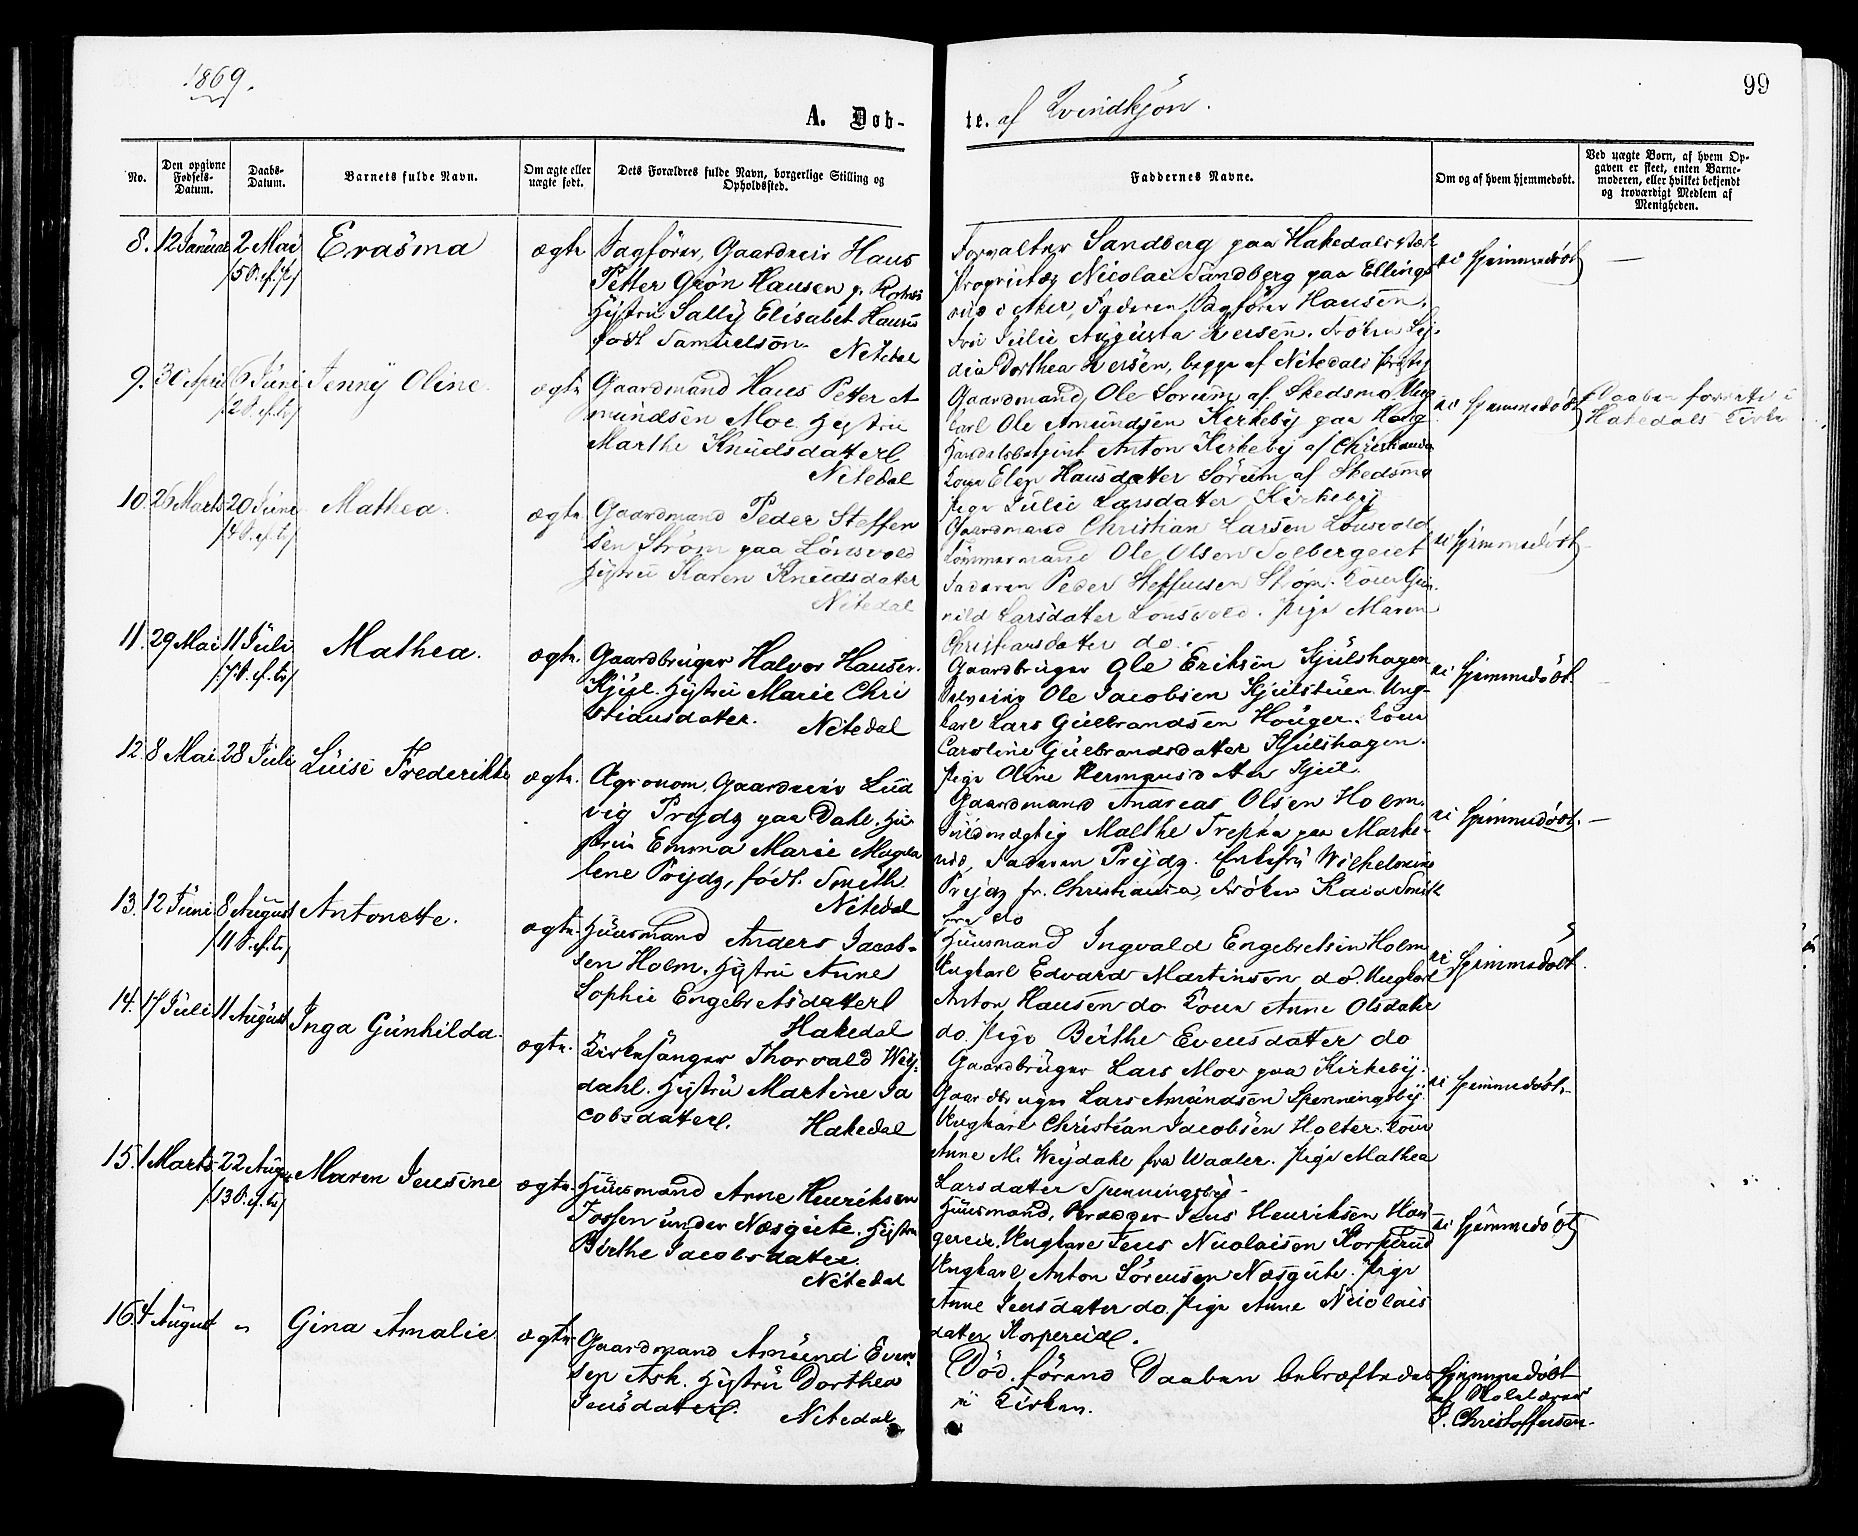 1869.
99
A. Døb-
te. af Kvindkjøn.
No.
Den opgivne Fødsels-Datum.
Daabs-Datum.
Barnets fulde Navn.
Om ægte eller uægte født.
Dets Forældres fulde Navn, borgerlige Stilling og Opholdssted.
Faddernes Navne.
Om og af hvem hjemmedøbt.
Ved uægte Børn, af hvem Opgaven er skeet, enten Barnemoderen, eller hvilket bekjendt og troværdigt Medlem af Menigheden.
8. 12 Januar 2 Mai Erasma ægte
Sagfører, Gaardeier Hans
Petter Grøn Hansen p. Rotnes
Hustru Sally Elisabet Hansen
født Samuelson.
Nitedal
Forvalter Sandberg paa Hakedals Værk
Proprietær Nicolai Sandberg paa Ellings
rud i Aker, Faderen, Sagfører Hansen,
Fru Julie Augusta Kersen. Frøken Ly-
dia Dorthea Kersen, begge af Nitedals Prstgj
ei hjemmedøbt
—
9. 30 April 6 Juni Jenny Oline. ægte
Gaardmand Hans Petter A-
mundsen Moe Hustru
Marthe Knudsdatter
Nitedal
Gaardmand Ole Sørum af Skedsmo Ung-
karl Ole Amundsen Kirkeby paa Haug
Handelsbetjent Anton Kirkeby af Christiania
Kone Elen Hansdatter Sørum af Skedsmo
Pige Julie Larsdatter Kirkeby
ei hjemmedøbt
Daaben forrettet i
Hakedals Kirke
10. 26 Marts 20 Juni Mathea. ægte
Gaardmand Peder Steffen
sen Strøm paa Lønsvold
Hustru Karen Knudsdatter
Nitedal
Gaardmand Christian Larsen Lønsvold
Tømmermand Ole Olsen Solbergeiet
Faderen Peder Steffensen Strøm. Kone Gun
nild Larsdatter Lønsvold. Pige Maren
Christiansdatter do.
ei hjemmedøbt
11. 29 Mai 11 Juli Mathea. ægte.
Gaardbruger Halvor Hansen
Kjul. Hustru Marie Chri
stiansdatter.
Nitedal
Gaardbruger Ole Eriksen Kjulshagen
Ole Jacobsen Kjulstuen. Ung-
karl Lars Gulbrandsen Houger. Kone
Caroline Gulbrandsdatter Kjulshagen.
Pige Oline Hermansdatter Kjul.
ei hjemmedøbt.
12. 8 Mai 28 Juli Luise Frederikke ægte.
Agronom, Gaardeier Lud
vig Prydz paa Dahl. Hu-
stru Emma Marie Magda
lene Prydz, født Smith.
Nitedal
Gaardmand Andreas Olsen Holm.
Fuldmægtig Malthe Trepka paa Marke-
rud, Faderen Prydz. Enkefru Wilhelmine
Prydz fr. Christiania, Frøken Kaia Smith
fra do
ei hjemmedøbt. —
13. 12 Juni 8 August Antonette. ægte.
Huusmand Anders Jacob-
sen Holm. Hustru Anne
Sophie Engebretsdatter
Hakedal
Huusmand Ingvald Engebretsen Holm
Ungkarl Edvard Martinsen do. Ungkarl
Anton Hansen do Kone Anne Olsdatter
do. Pige Birthe Evensdatter do
ei hjemmedøbt.
14. 17 Juli 11 August Inga Gunhilda. ægte.
Kirkesanger Thorvald Wey-
dahl. Hustru Martine Ja
cobsdatter.
Hakedal
Gaardbruger Lars Moe paa Kirkeby.
Gaardbruger Lars Amundsen Spenningsby.
Ungkarl Christian Jacobsen Holter. Kone
Anne M. Weydahl fra Waaler. Pige Mathea
Larsdatter Spenningsby
ei hjemmedøbt.
15. 1 Marts 22 August Maren Jensine ægte.
Huusmand Arne Henriksen
Fossen under Næsgute. Hustru
Birthe Jacobsdatter.
Nitedal
Huusmand, Henriksen Hou
gereie. Ungkarl Jens Nicolaisen Korperud
Ungkarl Anton Sørensen Næsgute. Pige
Anne Jensdatter do. Pige Anne Nicolais
datter Korpereie.
ei hjemmedøbt
16. 4 August " Gina Amalie. ægte.
Gaardmand Amund Even-
sen Ask. Hustru Dorthea
Jensdatter.
Nitedal
Død førend Daaben bekræftedes
i Kirken.
Hjemmedøbt
af Skolelærer
J. Christoffersen.